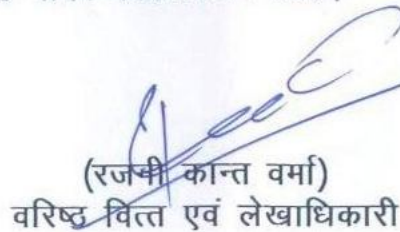 (रजनी कान्त वर्मा)
वरिष्ठ वित्त एवं लेखाधिकारी